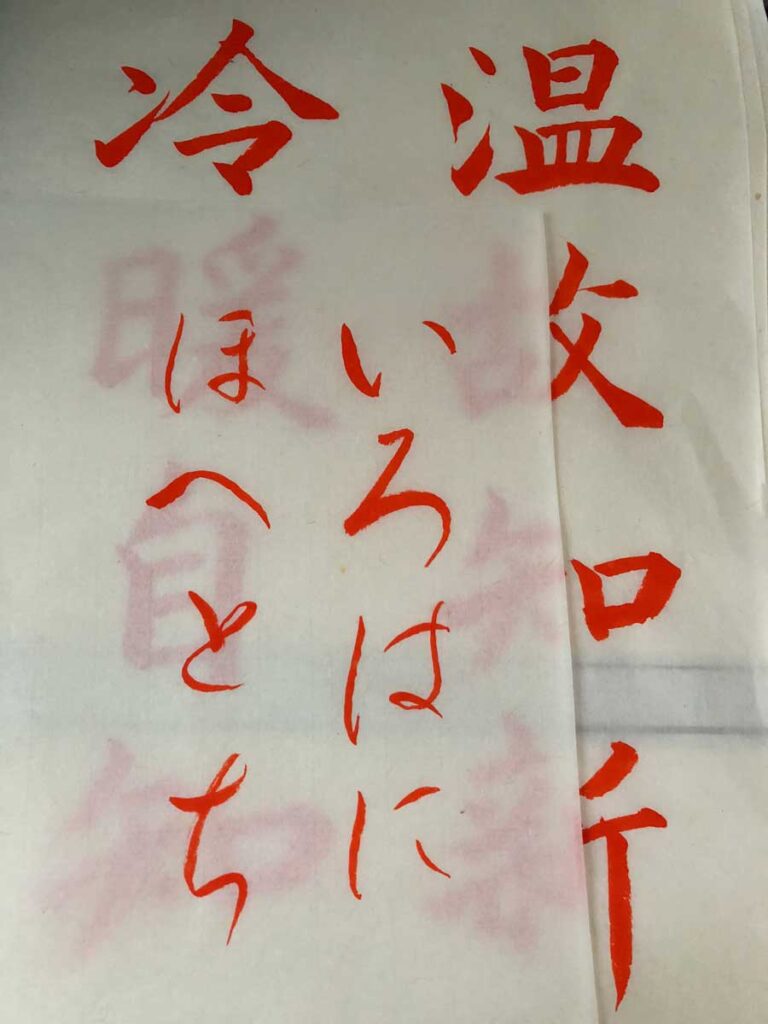 温故知新
冷暖自知
いろはに
ほへとち